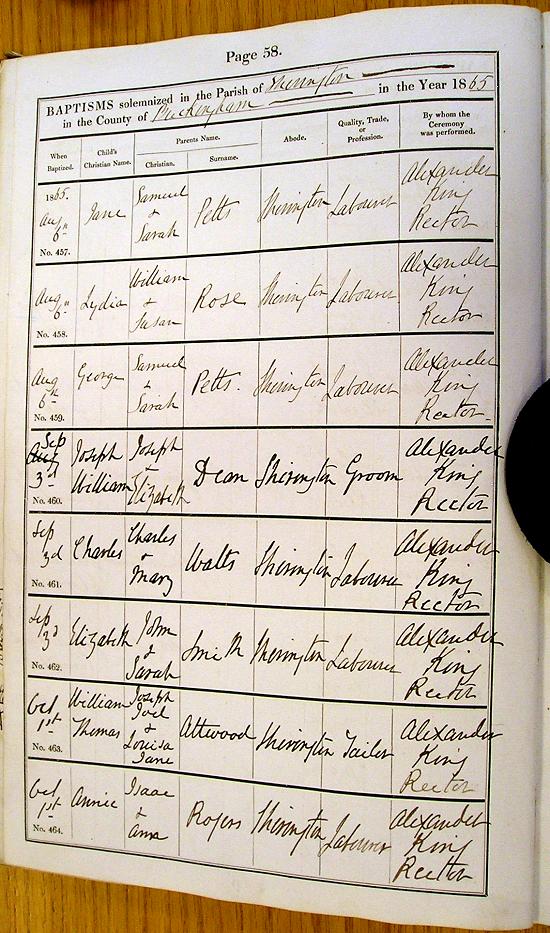 Page 58.
BAPTISMS solemnized in the Parish of Sherington
in the County of Buckingham in the Year 1865
When Baptized. Child's Christian Name. Parents Name. Christian. Surname. Abode. Quality, Trade, or Profession. By whom the Ceremony was performed.
1865. Aug 6th No. 457. Jane Samuel & Sarah Petts Sherington Labourer Alexander King Rector
Aug 6th No. 458. Lydia William & Susan Rose Sherington Labourer Alexander King Rector
Aug 6th No. 459. George Samuel & Sarah Petts. Sherington Labourer Alexander King Rector
Sep 3d No. 460. Joseph William Joseph & Elizabeth Dean Sherington Groom Alexander King Rector
Sep 3d No. 461. Charles Charles & Mary Watts Sherington Labourer Alexander King Rector
Sep 3d No. 462. Elizabeth John & Sarah Smith Sherington Labourer Alexander King Rector
Oct 1st No. 463. William Thomas Joseph Joel & Louisa Jane Attwood Sherington Tailor Alexander King Rector
Oct 1st No. 464. Annie Isaac & Ann Rogers Sherington Labourer Alexander King Rector